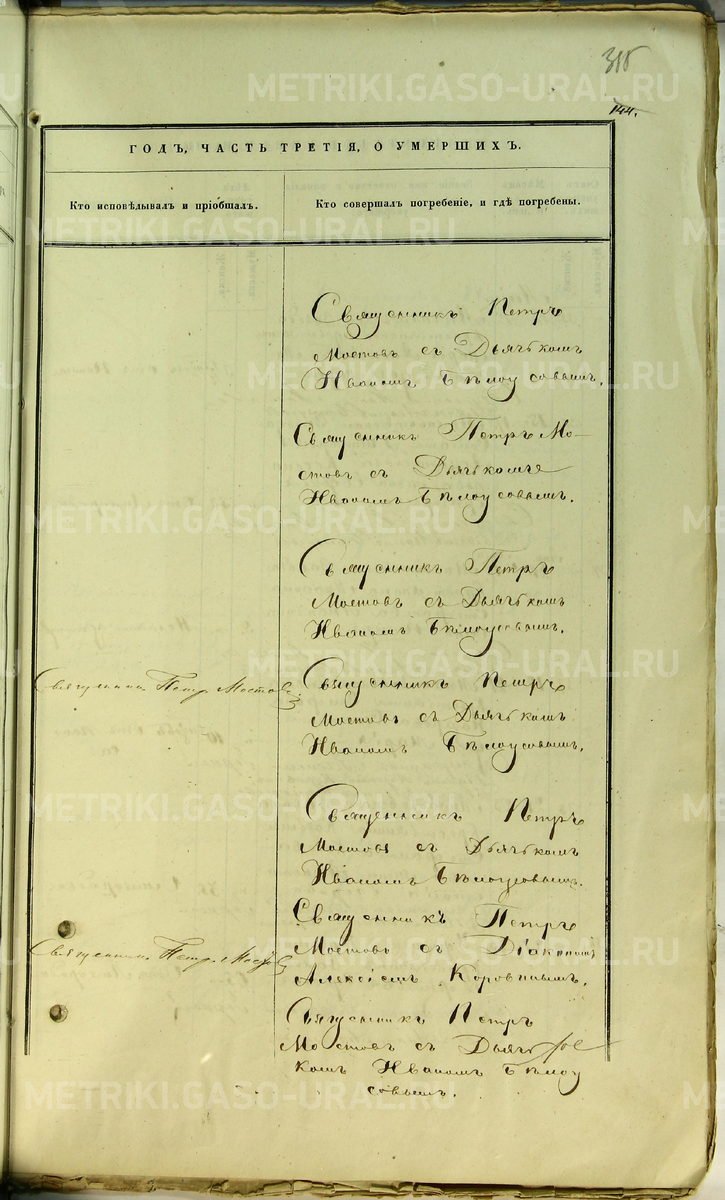 315
144.
ГОДЪ, ЧАСТЬ ТРЕТІЯ, О УМЕРШИХЪ.
Кто исповѣдывалъ и пріобщалъ.
Кто совершалъ погребеніе, и гдѣ погребены.
Священникъ Петръ
Мостовъ съ Дьячькомъ
Иваномъ Бѣлоусовымъ.
Священникъ Петръ Мо-
стовъ съ Дьячькомъ
Иваномъ Бѣлоусовымъ.
Священникъ Петръ
Мостовъ съ Дьячькомъ
Иваномъ Бѣлоусовымъ.
Священникъ Петръ Мостовъ
Священникъ Петръ
Мостовъ съ Дьячькомъ
Иваномъ Бѣлоусовымъ.
Священникъ Петръ
Мостовъ съ Дьячькомъ
Иваномъ Бѣлоусовымъ.
Священникъ Петръ Мостовъ
Священникъ Петръ
Мостовъ съ Діакономъ
Алексіемъ Коровинымъ.
Священникъ Петръ
Мостовъ съ Дьячь
комъ Иваномъ Бѣлоу
совымъ.
METRIKI.GASO-URAL.RU